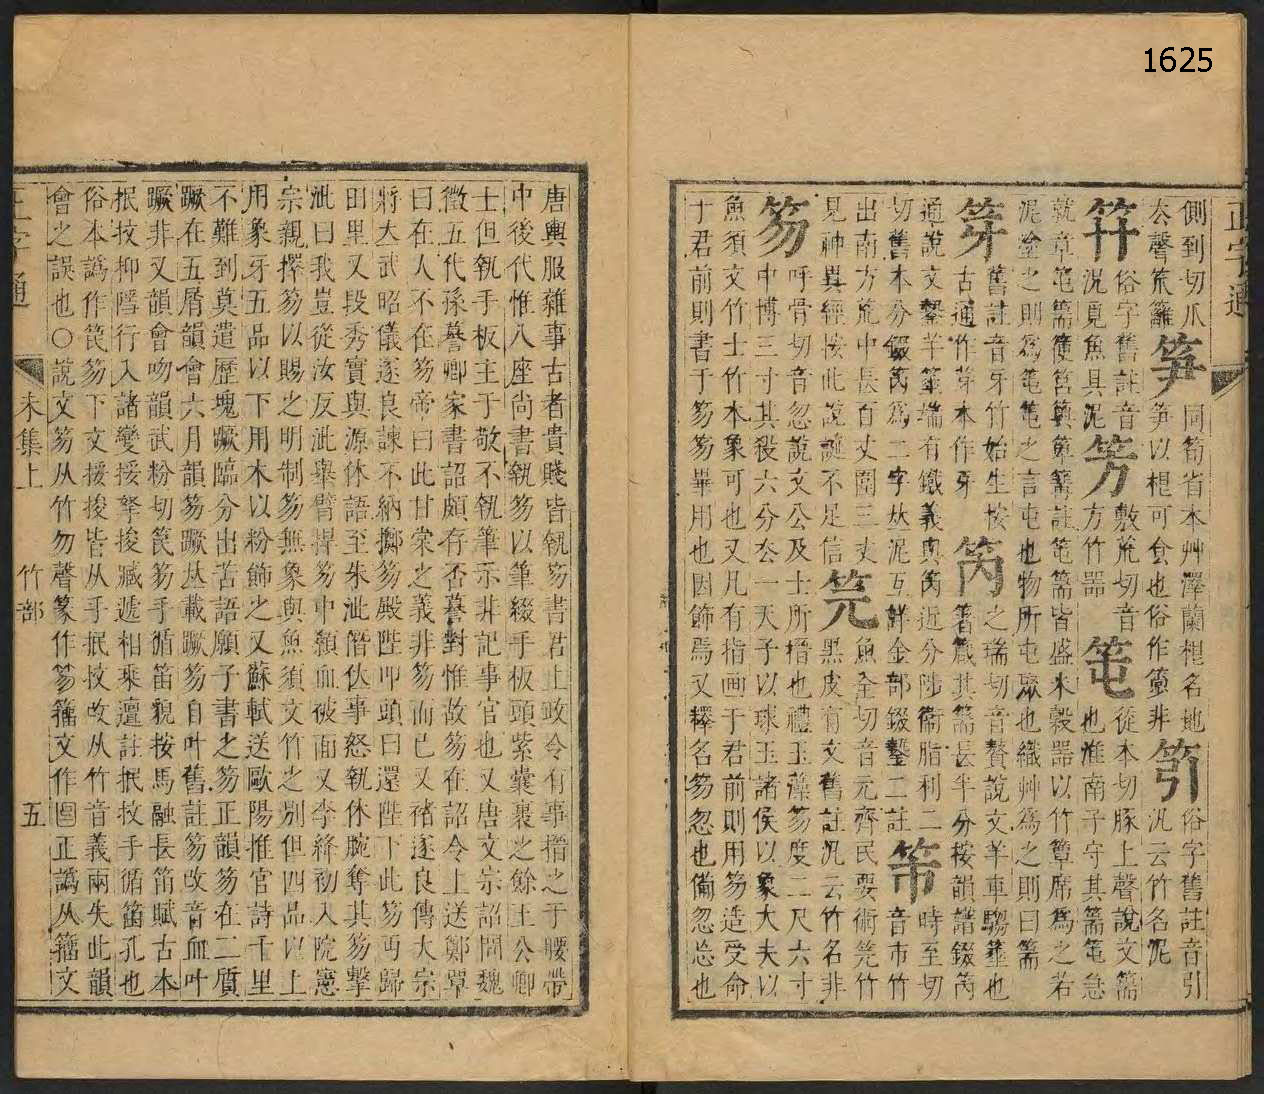 1625
正字通
側到切爪 笋 同筍省本艸澤蘭根名地 俗字舊註音引
去聲笊籬 笋以根可食也俗作 非 汎云竹名泥
俗字舊註音 敷荒切音 從本切豚上聲說文篅
汎覓魚具泥 方竹器 也淮南子守其篅 急
就章 篅 筥 箄篝註 篅皆盛米穀器以竹簟席爲之若
泥塗之則爲 之言屯也物所屯聚也織艸爲之則曰篅
笌 舊註音牙竹始生按 笍 之瑞切音贅說文羊車騶箠也
古通作芽本作牙 箸鍼其耑長半分按韻譜錣笍
通說文繫羊箠端有鐵義與笍近分陟衛脂利二 時至切
切舊本分錣笍爲二字 泥互詳金部錣鏊二註 音市竹
出南方荒中長百丈圍三丈 笎 魚全切音元齊民要術笎竹
見神異經按此說誕不足信 黑皮有文舊註汎云竹名非
笏 呼骨切音忽說文公及士所搢也禮玉藻笏度二尺六寸
中博三寸其殺六分去一天子以球玉諸侯以象大夫以
魚須文竹士竹本象可也又凡有指画于君前則用笏造受命
于君前則書于笏笏畢用也因飾焉又釋名笏忽也備忽忘也
唐輿服雜事古者貴賤皆執笏書君上政令有事搢之于腰帶
中後代惟八座尚書執笏以筆綴手板頭紫囊裹之餘王公卿
士但執手板主于敬不執筆示非記事官也又唐文宗詔問魏
徵五代孫謩卿家書詔頗存否謩對惟故笏在詔令上送鄭覃
曰在人不在笏帝曰此甘棠之義非笏而已又褚遂良傳大宗
將大武昭儀遂良諫不納擲笏殿陛叩頭曰還陛下此笏丏歸
田里又段秀實與源休語至朱泚僭佚事怒執休腕奪其笏擊
泚曰我豈從汝反泚舉臂捍笏中顙血被面又李絳初入院憲
宗親擇笏以賜之明制笏無象與魚須文竹之别但四品以上
用象牙五品以下用木以粉飾之又蘇軾送歐陽推官詩千里
不難到莫遣歷塊蹶臨分出苦語願子書之笏正韻笏在二質
蹶在五屑韻會六月韻笏蹶 載蹶笏自叶舊註笏改音血叶
蹶非又韻會吻韻武粉切笢笏手循笛貌按馬融長笛賦古本
抿抆抑隱行入諸變挼拏捘臧遞相乘邅註抿抆手循笛孔也
俗本譌作笢笏下文挼捘皆从手抿抆改从竹音義兩失此韻
會之誤也○說文笏从竹勿聲篆作笏籒文作 正譌从籒文
正字通 未集上 竹部 五